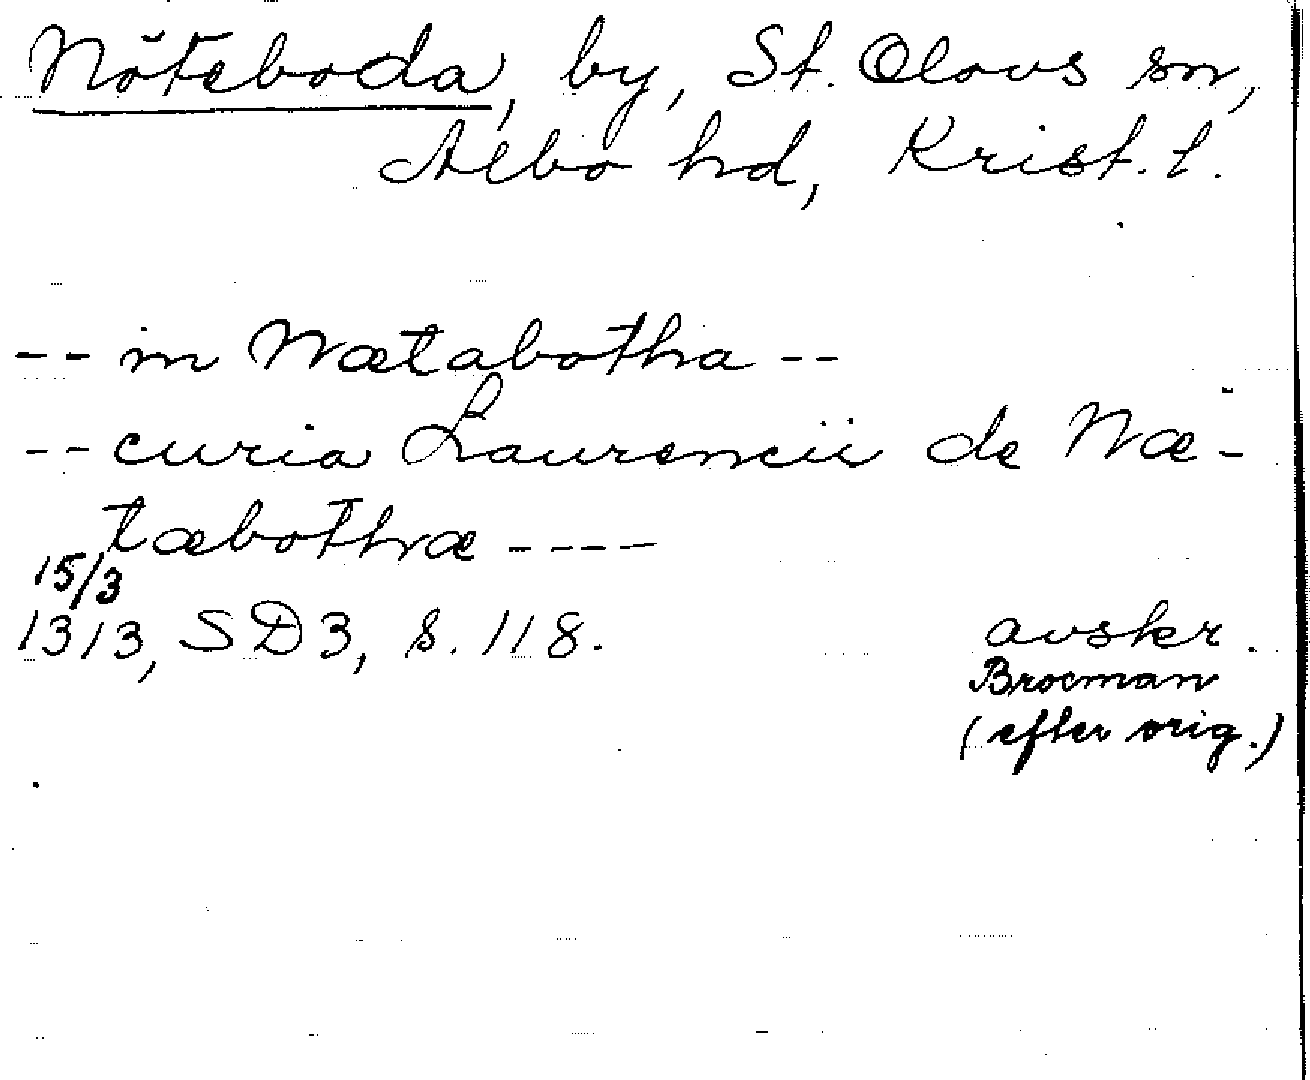 Nöteboda, by, St. Olovs sn,
Albo hd, Krist. l.
-- in Nætabotha --
-- curia Laurencii de Næ-
tæbothæ ----
15/3
1313, SD3, s. 118. avskr.
Brocman
(efter orig.)